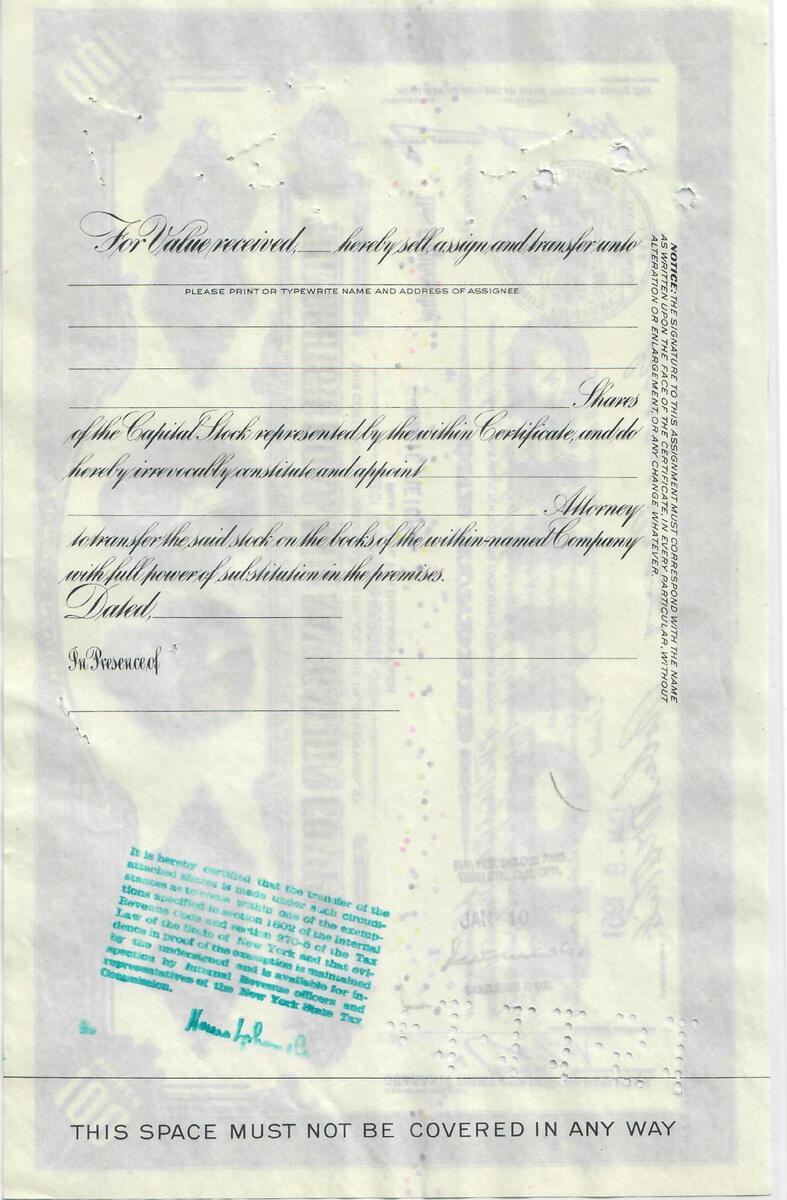 For Value received, hereby sell, assign and transfer unto
PLEASE PRINT OR TYPEWRITE NAME AND ADDRESS OF ASSIGNEE
Shares
of the Capital Stock represented by the within Certificate, and do
hereby irrevocably constitute and appoint
Attorney
to transfer the said stock on the books of the within-named Company
with full power of substitution in the premises.
Dated,
In Presence of
NOTICE: THE SIGNATURE TO THIS ASSIGNMENT MUST CORRESPOND WITH THE NAME
AS WRITTEN UPON THE FACE OF THE CERTIFICATE, IN EVERY PARTICULAR, WITHOUT
ALTERATION OR ENLARGEMENT, OR ANY CHANGE WHATEVER.
It is hereby certified that the transfer of the
attached shares is made under such circum-
stances as to come within one of the exemp-
tions specified in section 1802 of the Internal
Revenue Code and section 270-5 of the Tax
Law of the State of New York and that evi-
dence in proof of the exemption is maintained
by the undersigned and is available for in-
spection by Internal Revenue officers and
representatives of the New York State Tax
Commission.
THIS SPACE MUST NOT BE COVERED IN ANY WAY